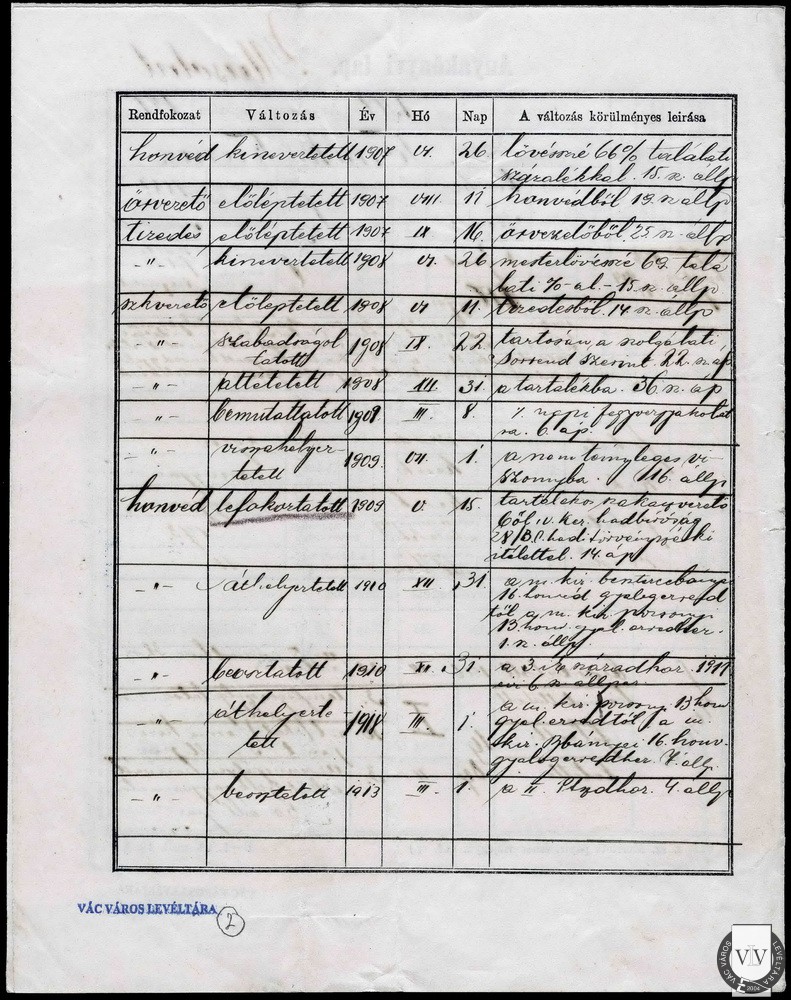 Rendfokozat Változás Év Hó Nap A változás körülményes leirása
honvéd kineveztetett 1907 VI. 26. lövésszé 66% találati
százalékkal. 15. n. állp
őrvezető előléptetett 1907 VIII. 11 honvédből 19. n. állp
tizedes előléptetett 1907 IX 16. őrvezetőből 25. n. állp
-"- kineveztetett 1908 VI. 26 mesterlövésszé 69. talá
lati %-al. - 15. n. állp
szkvezető előléptetett 1908 VI 11. tizedesből. 14. n. állp
-"- szabadságol 1908 IX 22 tartósan a szolgálati
tatott sorrend szerint. 22. n. áp.
-"- áttétetett 1908 XII. 31. a tartalékba. 36. n. áp
-"- bemutattatott 1909 III. 8. napi fegyvergyakorlat
ra. 6. áp.
-"- visszahelyez- 1909. VII. 1. a nem tényleges vi-
tetett szonyba. 116. állp
honvéd lefokoztatott 1909 V. 15. tartalékos szakaszvezető
ből IV. ker. hadbíróság
haditörvényszéki
itélettel. 14. áp
-"- áthelyeztetett 1910 XII. 31. a m. kir. beszterczebányai
16. honvéd gyalogezred
től a m. kir. pozsonyi
13. honv. gyal. ezredhez.
1. n. állp.
-"- beosztatott 1910 XII. 31. a 3. ik századhoz. 1911
évi 6. n. állp
-"- áthelyezte 1913 III. 1. a m. kir. pozsonyi 13 honv
tett gyal. ezredtől a m.
kir. Bbányai 16. honv.
gyalogezredhez. 7. állp.
-"- beosztatott 1913 III 1. a II. Ptzdhoz. 4. állp
VÁC VÁROS LEVÉLTÁRA 2
VÁC VÁROS LEVÉLTÁRA
VVL
2004